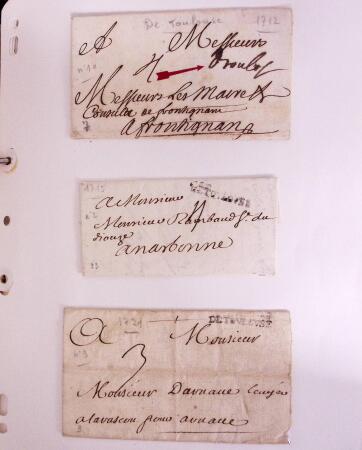 De Toulouse 1712
A Messieurs
n° 1
4 Dtoulose
Messieurs Les Maire &
Consuls de frontignan
A frontignan
1715
DETOULOUSE
a Monsieur
n° 2
4
Monsieur Rambaud Sr. du
a narbonne
1721
DETOULOUSE
A Monsieur
n° 3
3
Monsieur Darnaue
a tarascon pour arnaue